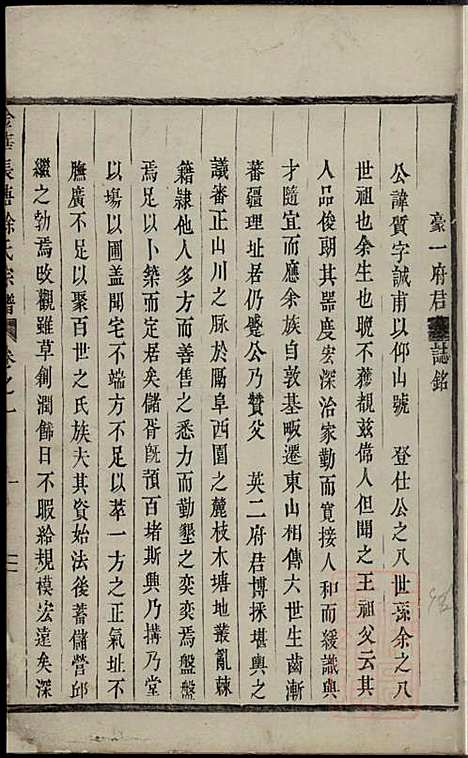 豪一府君墓誌銘
公諱質字誠甫以仰山號 登仕公之八世孫余之八
世祖也余生也晚不獲覩茲偉人但聞之王祖父云其
人品俊朗其器度宏深治家勤而寬接人和而緩識與
才隨宜而應余族自敦基畈遷東山相傳六世生齒漸
蕃疆理址居仍蹙公乃贊父 英二府君博採堪輿之
議審正山川之脉於隔阜西園之麓枝木塘地叢亂棘
籍隷他人多方而善售之悉力而勤墾之奕奕焉盤盤
焉足以卜築而定居矣儲胥旣預百堵斯興乃搆乃堂
以塲以圃葢聞宅不端方不足以萃一方之正氣址不
膴廣不足以聚百世之氏族夫其資始法後蓄儲營邱
繼之勃焉攺觀雖草創潤餙日不暇給規模宏遠矣深
金華長塘徐氏宗譜 卷之